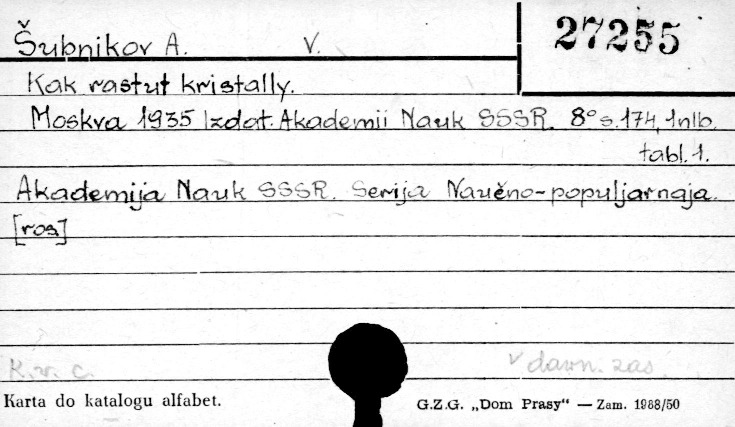 Šubnikov A. V. 27255
Kak rastut kristally.
Moskva 1935 Izdat. Akademii Nauk SSSR. 8° s. 174, 1 nlb.
tabl. 1.
Akademija Nauk SSSR. Serija Naučno-populjarnaja.
[ros]
K. v. c. v dawn. zas.
Karta do katalogu alfabet. G.Z.G. „Dom Prasy“ — Zam. 1988/50